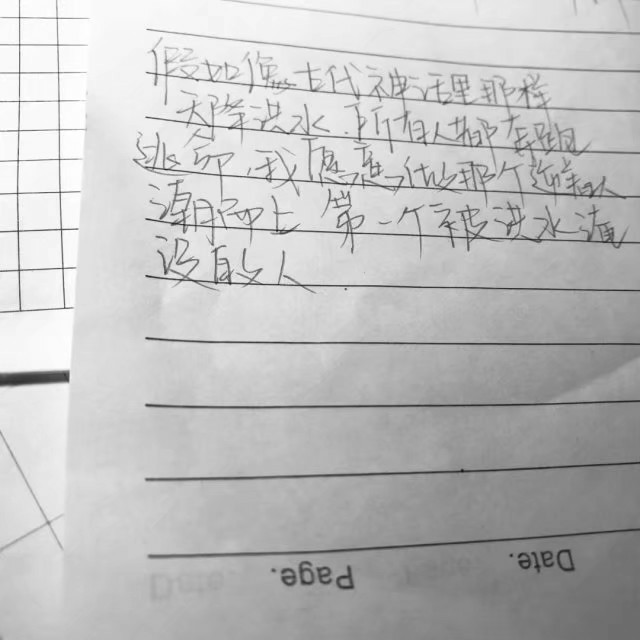 假如像古代神话里那样
天降洪水,所有人都在跑
逃命,我愿意做那个逆着人
潮而上 第一个被洪水淹
没的人
Page.
Date.